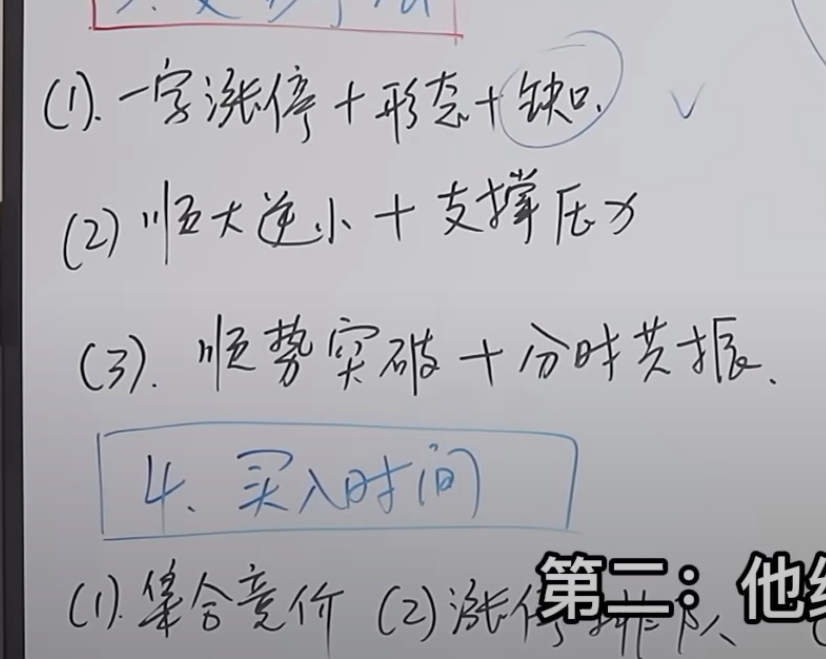 (1). 一字涨停+形态+缺口.
(2) 顺大逆小+支撑压力
(3). 顺势突破+分时共振.
4、买入时间
(1). 集合竞价 (2) 涨停排队
第二：他